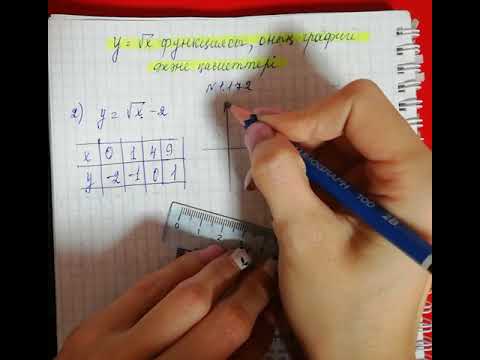 y = √x функциясы, оның графигі
және қасиеттері
№1.172
2) y = √x - 2
x 0 1 4 9
y -2 -1 0 1
0 1 2 3
100 2B